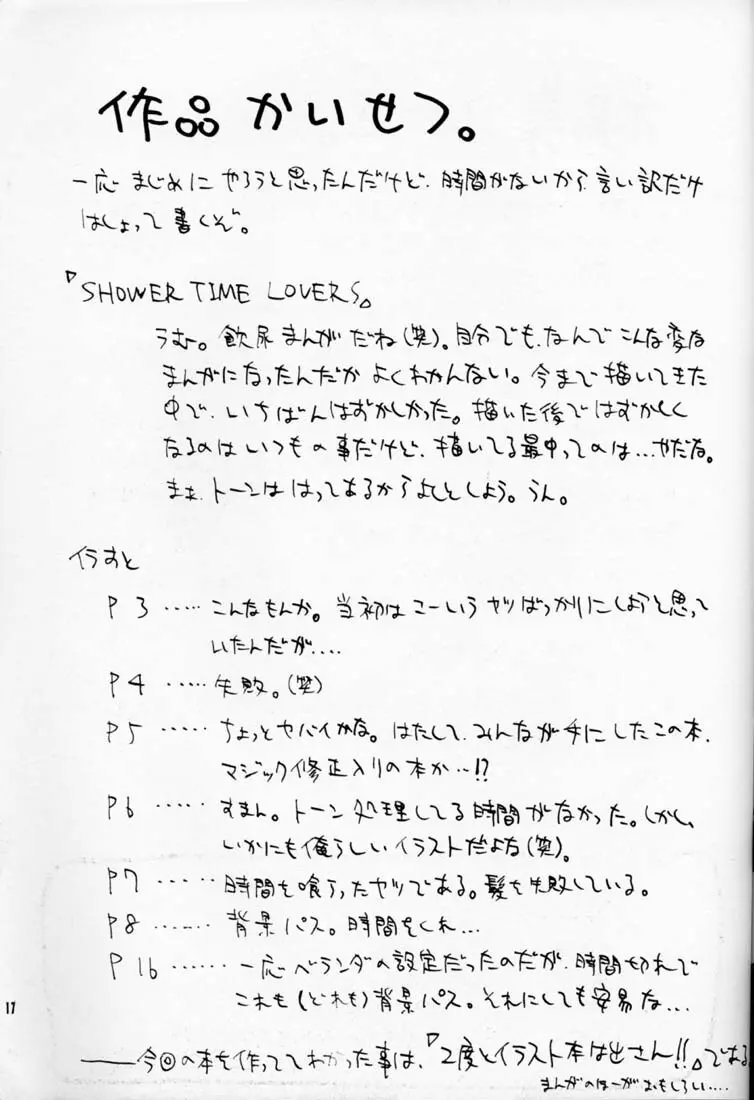 作品かいせつ。
一応まじめにやろうと思ったんだけど、時間がないから言い訳だけ
はしょって書くぞ。
『SHOWER TIME LOVERS』
うむ。飲尿まんがだね(笑)。自分でも、なんでこんな変な
まんがになったんだかよくわかんない。今まで描いてきた
中で、いちばんはずかしかった。描いた後ではずかしく
なるのはいつもの事だけど、描いてる最中ってのは…やだな。
まぁ、トーンははってあるからよしとしよう。うん。
イラすと
P3……こんなもんか。当初はこーいうヤツばっかりにしようと思って
いたんだが....
P4……失敗。(笑)
P5……ちょっとヤバイかな。はたして、みんなが手にしたこの本、
マジック修正入りの本か…!?
P6……すまん。トーン処理してる時間がなかった。しかし、
いかにも俺らしいイラストだよな(笑)。
P7……時間を喰ったヤツである。髪を失敗している。
P8……背景パス。時間をくれ…
P16……一応ベランダの設定だったのだが、時間切れで
これも(どれも)背景パス。それにしても安易な…
17
――今回の本を作っててわかった事は、『2度とイラスト本は出さん!!』である
まんがのほーがおもしろい....